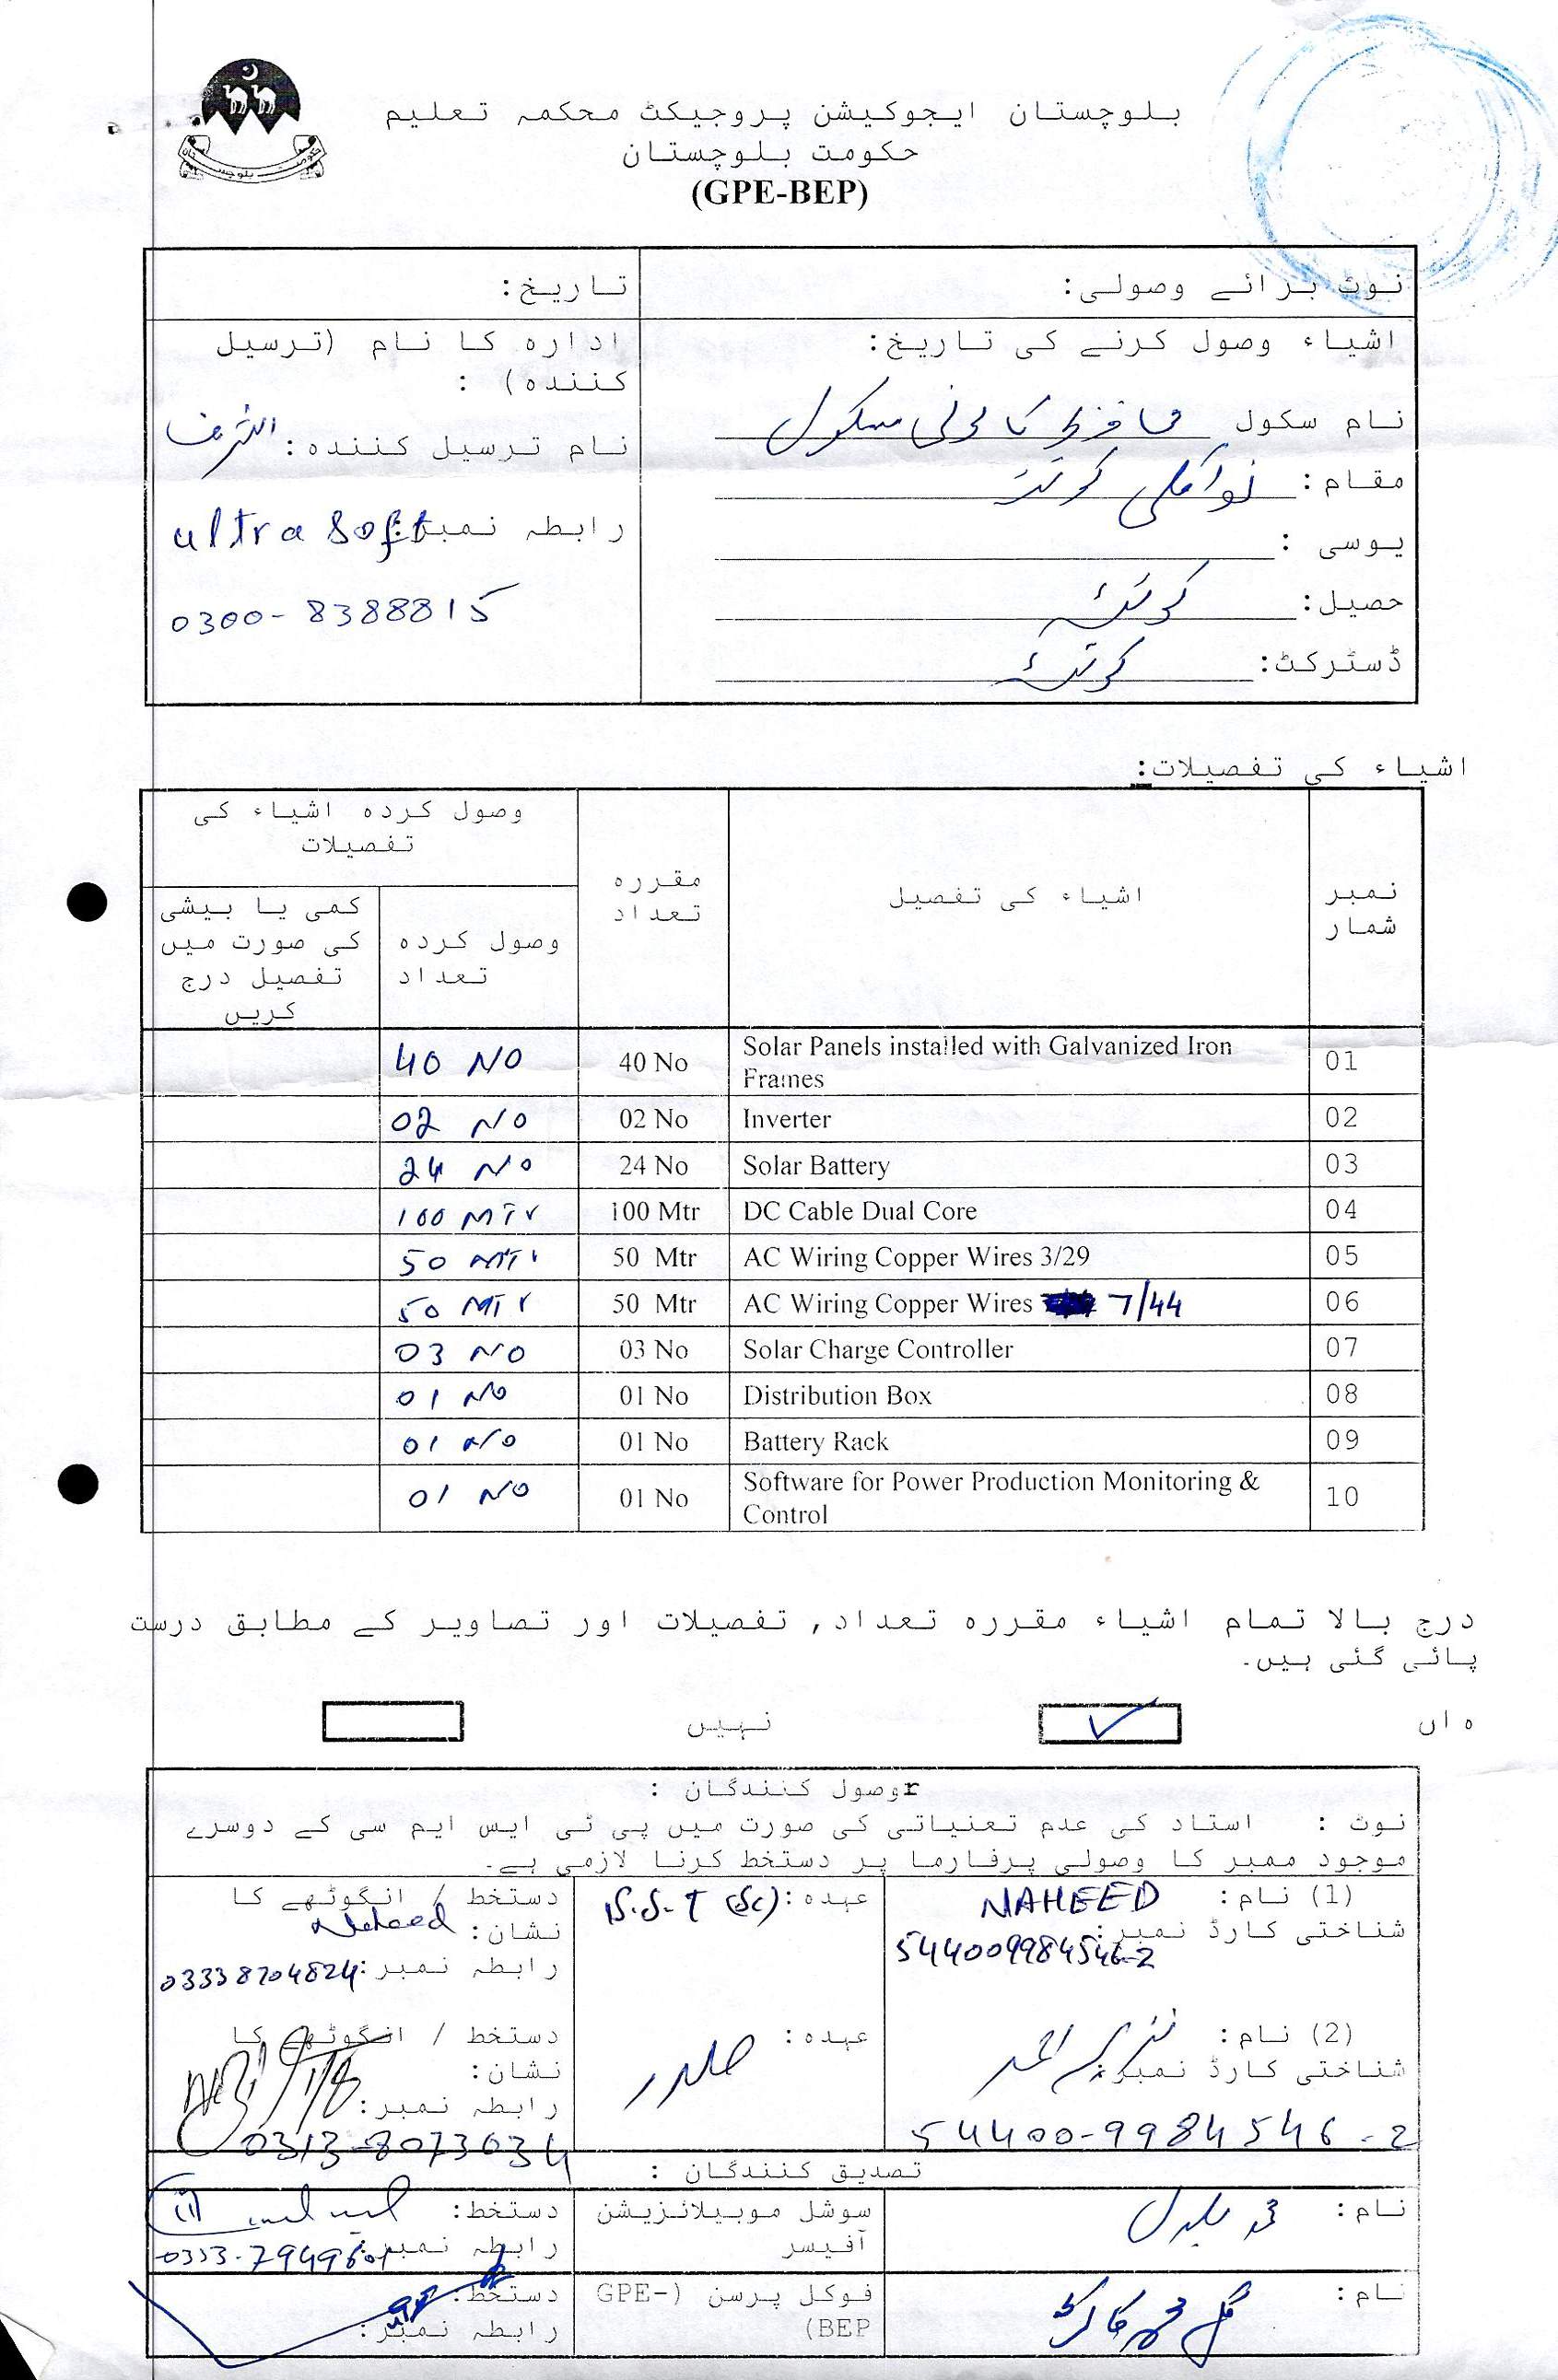 بلوچستان ایجوکیشن پروجیکٹ محکمہ تعلیم
حکومت بلوچستان
(GPE-BEP)
نوٹ برائے وصولی:
تاریخ:
اشیاء وصول کرنے کی تاریخ:
نام سکول
مقام: نواں کلی کوئٹہ
یوسی :
حصیل: کوئٹہ
ڈسٹرکٹ: کوئٹہ
ادارہ کا نام (ترسیل
کنندہ) :
نام ترسیل کنندہ:
رابطہ نمبر: ultra soft
0300-8388815
اشیاء کی تفصیلات:
نمبر شمار
اشیاء کی تفصیل
مقررہ تعداد
وصول کردہ اشیاء کی تفصیلات
وصول کردہ تعداد
کمی یا بیشی کی صورت میں تفصیل درج کریں
01 Solar Panels installed with Galvanized Iron Frames 40 No 40 NO
02 Inverter 02 No 02 NO
03 Solar Battery 24 No 24 NO
04 DC Cable Dual Core 100 Mtr 100 MTr
05 AC Wiring Copper Wires 3/29 50 Mtr 50 MTr
06 AC Wiring Copper Wires 7/44 50 Mtr 50 MTr
07 Solar Charge Controller 03 No 03 NO
08 Distribution Box 01 No 01 NO
09 Battery Rack 01 No 01 NO
10 Software for Power Production Monitoring & Control 01 No 01 NO
درج بالا تمام اشیاء مقررہ تعداد, تفصیلات اور تصاویر کے مطابق درست
پائی گئی ہیں۔
ہاں ✓ نہیں
rوصول کنندگان :
نوٹ : استاد کی عدم تعنیاتی کی صورت میں پی ٹی ایس ایم سی کے دوسرے
موجود ممبر کا وصولی پرفارما پر دستخط کرنا لازمی ہے۔
(1) نام: NAHEED
شناختی کارڈ نمبر: 544009984546-2
عہدہ: S.S.T (Sc)
دستخط / انگوٹھے کا
نشان: Naheed
رابطہ نمبر: 03338704824
(2) نام: نذیر احمد
شناختی کارڈ نمبر:
54400-9984546-2
عہدہ: صدر
دستخط / انگوٹھے کا
نشان:
رابطہ نمبر:
0313-8073634
تصدیق کنندگان :
نام: محمد
سوشل موبیلائزیشن
آفیسر
دستخط:
رابطہ نمبر:
نام: گل محمد کاکڑ
فوکل پرسن (GPE-
BEP)
دستخط:
رابطہ نمبر: